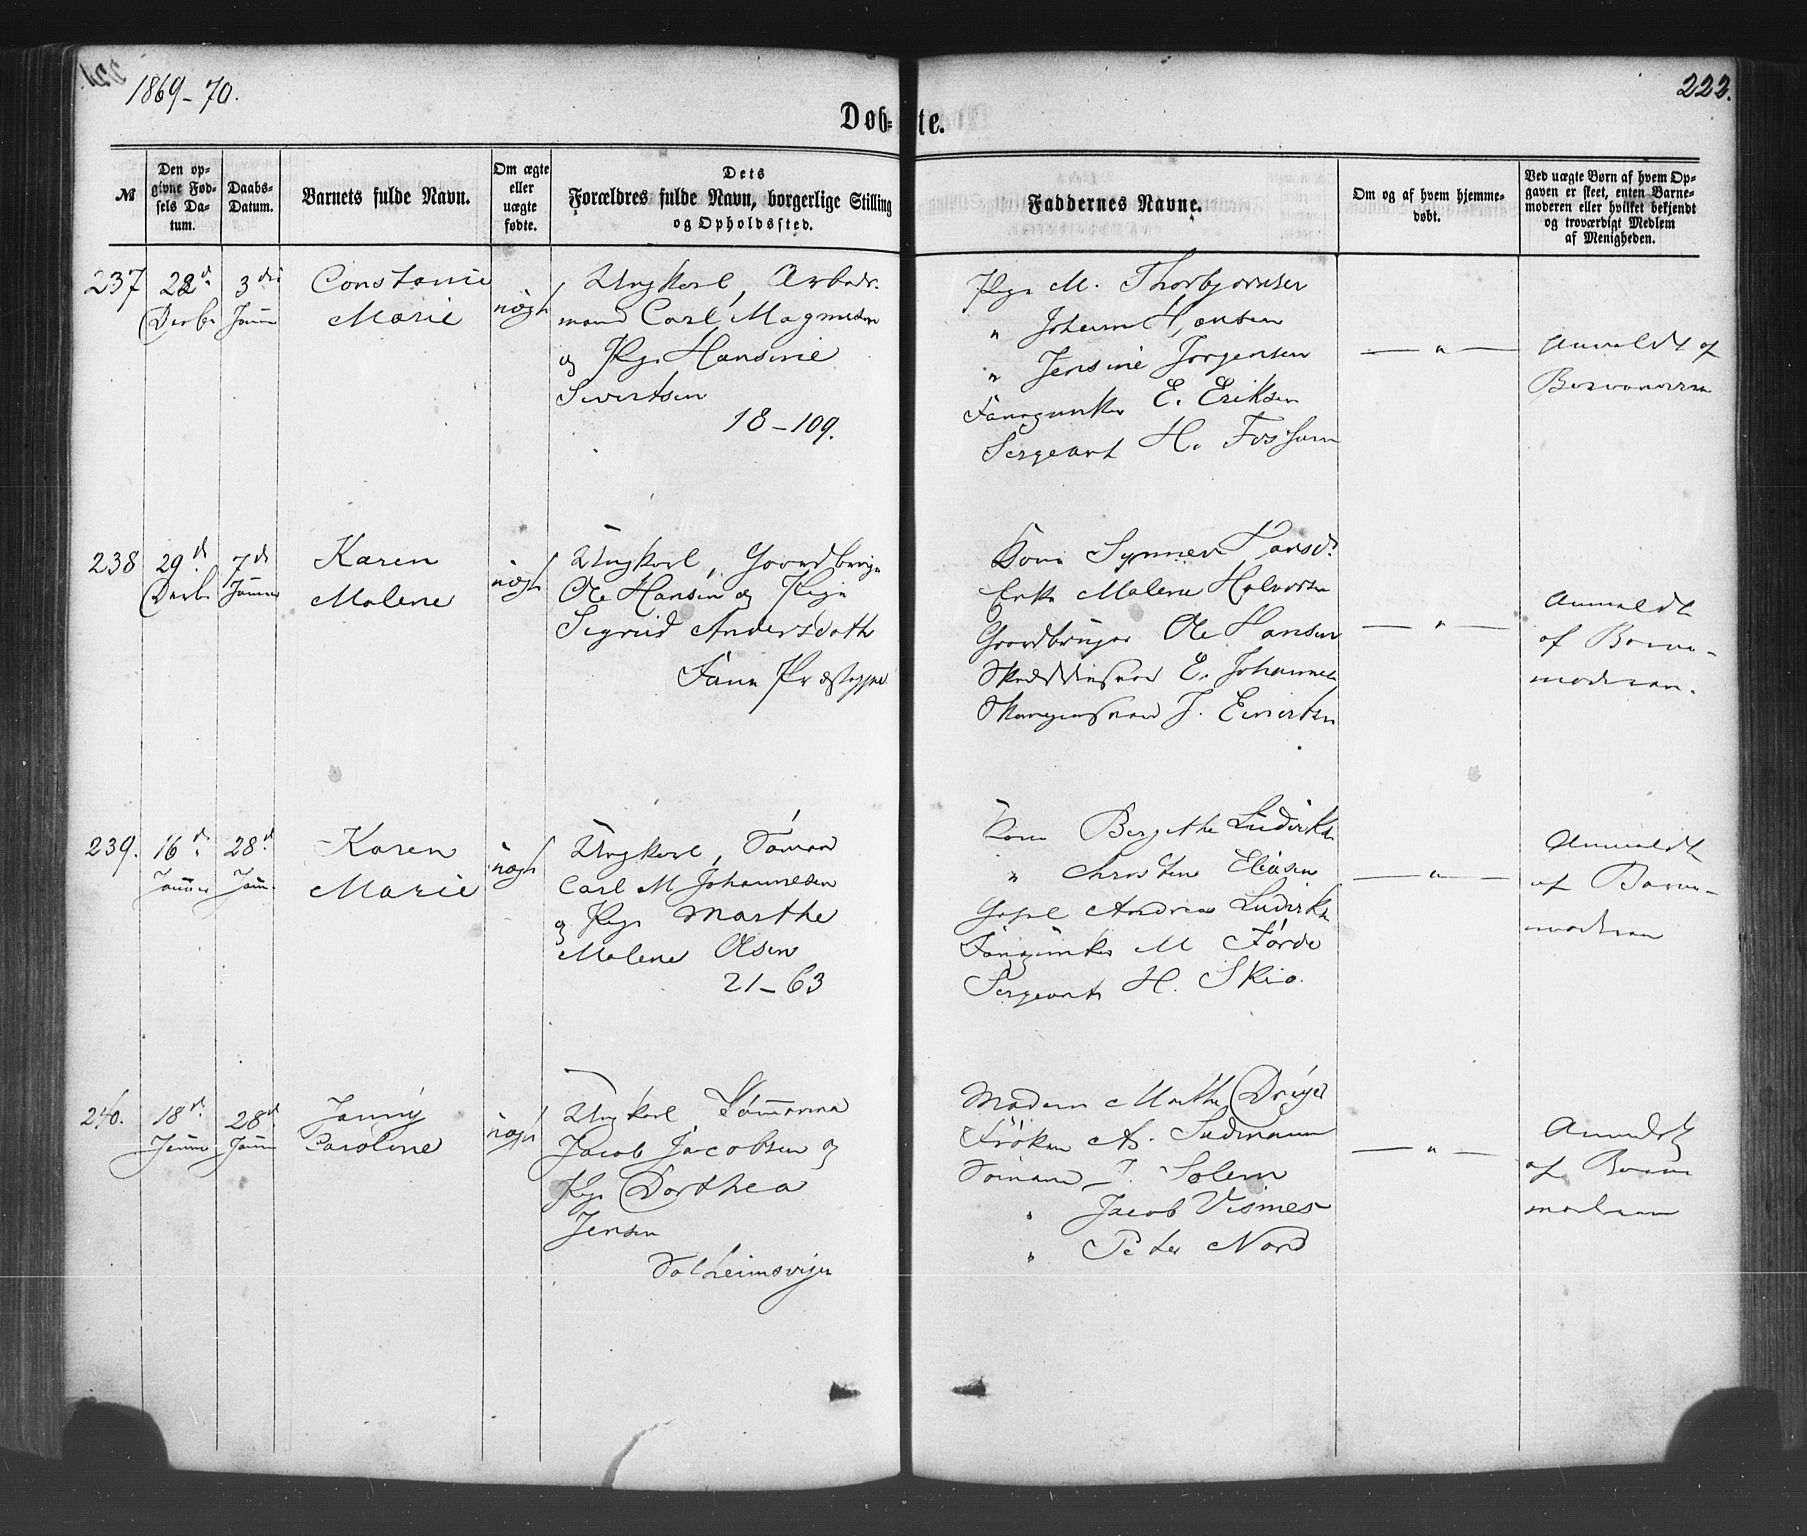 1869-70.
222.
Døb=
te.
№
Den op-
givne Fød-
sels Da-
tum.
Daabs-
Datum.
Barnets fulde Navn.
Om ægte
eller
uægte
fødte.
Dets
Forældres fulde Navn, borgerlige Stilling
og Opholdssted.
Faddernes Navne.
Om og af hvem hjemme-
døbt.
Ved uægte Børn af hvem Op-
gaven er skeet, enten Barne-
moderen eller hvilket bekjendt
og troværdigt Medlem
af Menigheden.
237
Decbr
Constanse
Marie
uægt
Ungkarl, Arbeids-
mand Carl Magnusen
og Pige Hansine
Sivertsen
18-109.
Pige M. Thorbjørnsen
" Johan Hansen
" Jensine Jørgensen
E. Eriksen
Sergeant H. Fossum
— " —
Anmeldt af
238
29d
Decbr
7d
Januar
Karen
Malene
uægt
Ungkarl, Gaardbruger
Ole Hansen og Pige
Sigrid Andersdatt
Fane Præstegjæld
Kone Synneve Hansd.
Enke Malene Halvorsen
Gaardbruger Ole Hansen
E. Johannes
J. Einertsen
— " —
Anmeldt
af Barne-
moderen.
239.
16d.
Januar
28d.
Jan.
Karen
Marie
uægt
Ungkarl, Sømand
Carl M Johannesen
og Pige Marthe
Malene Olsen
21-63
Kone Bergithe Ludviks
" Christine Eliasen
Andreas Ludviks
M Førde
Sergeant H. Skio.
— " —
Anmeldt
af Barne-
moderen
240.
18d.
Januar
28d
Jan
Janny
Caroline
uægt
Ungkarl Sømand
Jacob Jacobsen og
Pige Dorthea
Jensen
Solheimsvigen
Madam Marthe Dreyer
Frøken A. Sudmann
Sømand J. Solem
" Jacob Vismes
" Peter Nord
— " —
Anmeldt
af Barne
moderen